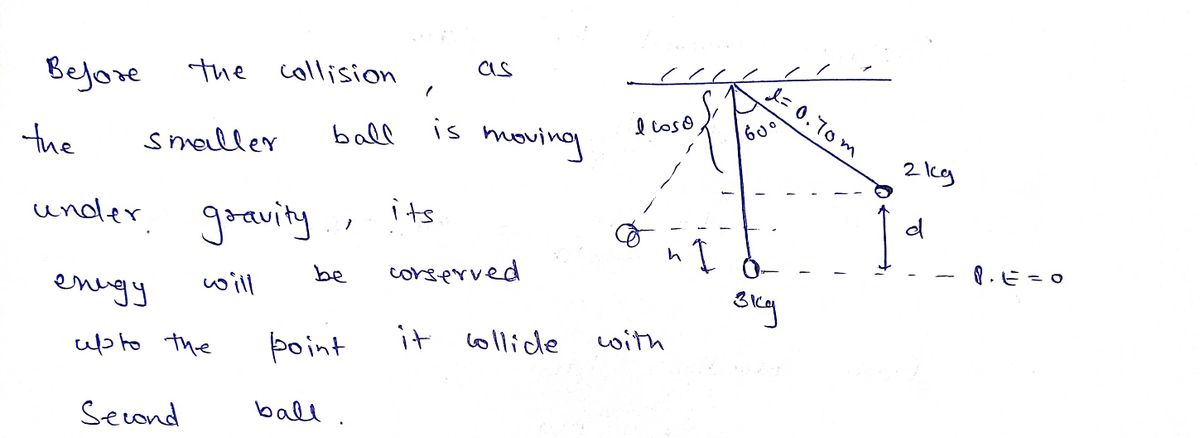 Before the collision, as
the smaller ball is moving
under gravity, its
energy will be conserved
upto the point it collide with
Second ball.
l cosθ
60°
l = 0.70m
2 kg
d
h
P.E = 0
3 kg